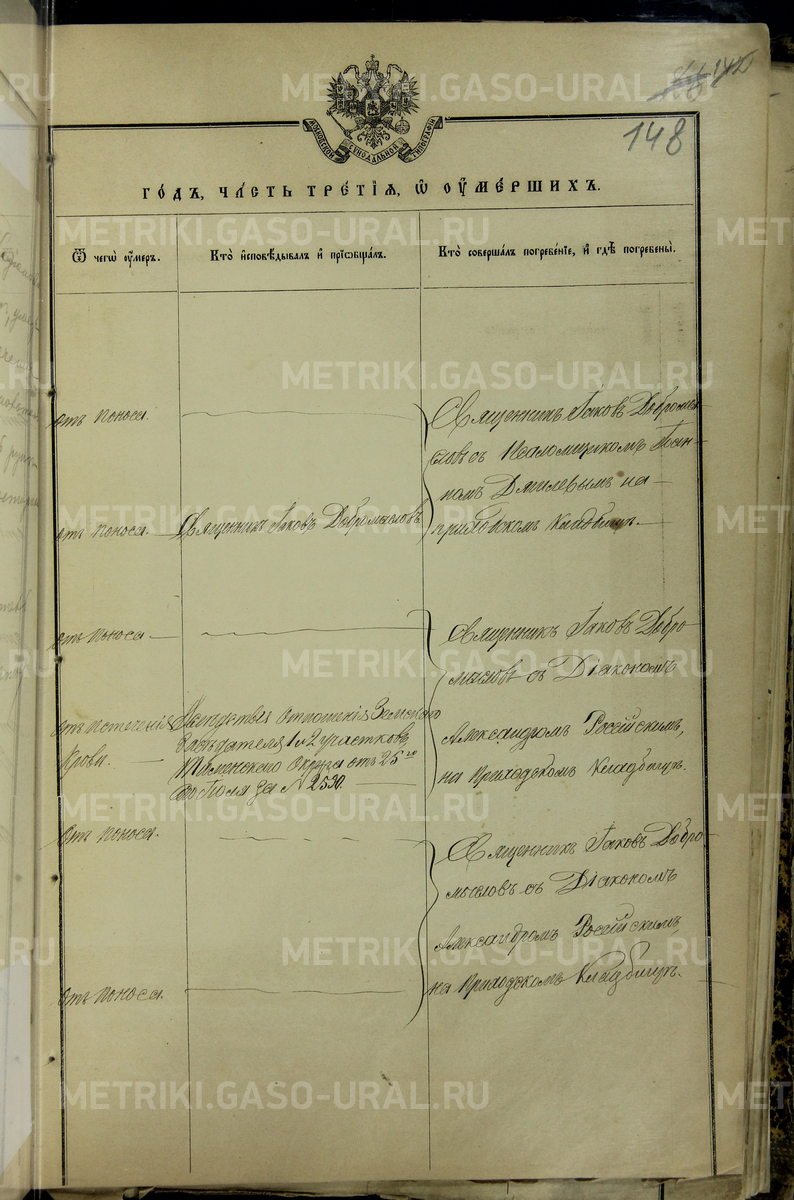 148
МОСКОВСКОЙ СѴНОДАЛЬНОЙ ТИПОГРАФІИ
ГО́ДЪ, ЧА́СТЬ ТРЕ́ТІѦ, Ѡ҆ ОУ҆МЕ́РШИХЪ.
Ѿ чегѡ̀ оу҆́меръ.
Кто̀ и҆сповѣ́дывалъ и҆ прїѡбща́лъ.
Кто̀ соверша́лъ погребе́нїе, и҆ гдѣ̀ погребены̀.
отъ Поноса.
Священникъ Іаковъ Добромы
словъ съ Псаломщикомъ
на
приходскомъ кладбищѣ.
отъ Поноса.
Священникъ Іаковъ Добромысловъ
отъ Поноса
Священникъ Іаковъ Добро
мысловъ съ Діакономъ
Александромъ Россійскимъ,
на Приходскомъ Кладбищѣ.
отъ Истеченія
Крови.
Вслѣдствіе Отношенія Земскаго
Засѣдателя 1 и 2 участковъ
Тюменскаго Округа отъ 25го
Іюля за № 2530
отъ Поноса.
Священникъ Іаковъ Добро
мысловъ съ Діакономъ
Александромъ Россійскимъ,
на Приходскомъ Кладбищѣ.
отъ Поноса.
METRIKI.GASO-URAL.RU